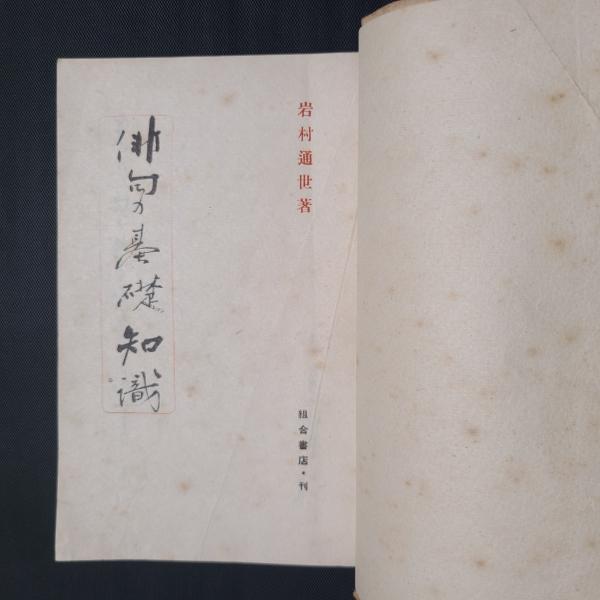 岩村通世著
俳句の基礎知識
組合書店・刊